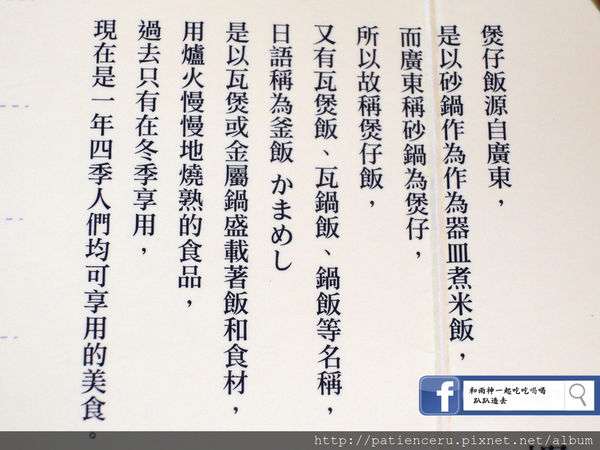 煲仔飯源自廣東，
是以砂鍋作為作為器皿煮米飯，
而廣東稱砂鍋為煲仔，
所以故稱煲仔飯，
又有瓦煲飯、瓦鍋飯、鍋飯等名稱，
日語稱為釜飯 かまめし
是以瓦煲或金屬鍋盛載著飯和食材，
用爐火慢慢地燒熟的食品，
過去只有在冬季享用，
現在是一年四季人們均可享用的美食。
和雨神一起吃吃喝喝
趴趴造去
http://patienceru.pixnet.net/album